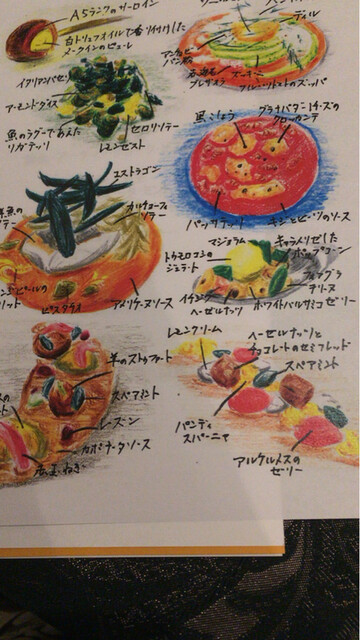 A5ランクのサーロイン
白トリュフオイルで香り付けした
メークインのピュレ
ディル
ズッキーニ
フルーツトマトのズッパ
イタリアンパセリ
アーモンドダイス
セロリソテー
レモンゼスト
魚のラグーであえた
リガテッリ
黒こしょう
グラナパダーノチーズの
クロッカンテ
パッサテッリ
キジとビーツのソース
エストラゴン
カルチョーフィ
ソテー
ピスタチオ
アメリケーヌソース
マジョラム
キャラメリゼした
ポップコーン
トウモロコシの
ジェラート
フォアグラ
テリーヌ
ヘーゼルナッツ
ホワイトバルサミコゼリー
羊のストゥファート
スペアミント
レーズン
カポナータソース
赤玉ねぎ
レモンクリーム
ヘーゼルナッツと
チョコレートのセミフレッド
スペアミント
パンディ
スパーニャ
アルケルメスの
ゼリー